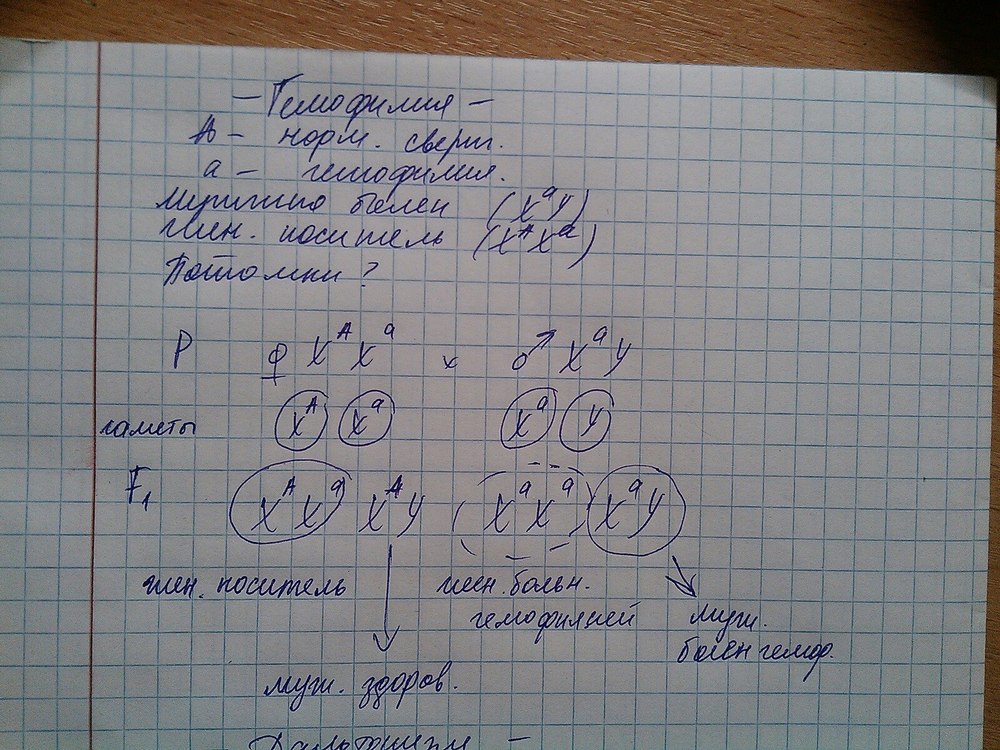 — Гемофилия —
A — норм. сверт.
a — гемофилия.
Мужчина болен (XᵃY)
Жен. носитель (XᴬXᵃ)
Потомки?
P ♀ XᴬXᵃ x ♂ XᵃY
гаметы Xᴬ Xᵃ Xᵃ Y
F₁ XᴬXᵃ XᴬY XᵃXᵃ XᵃY
жен. носитель
жен. больн.
гемофилией
муж.
болен гемоф.
муж. здоров.
Дальтонизм —